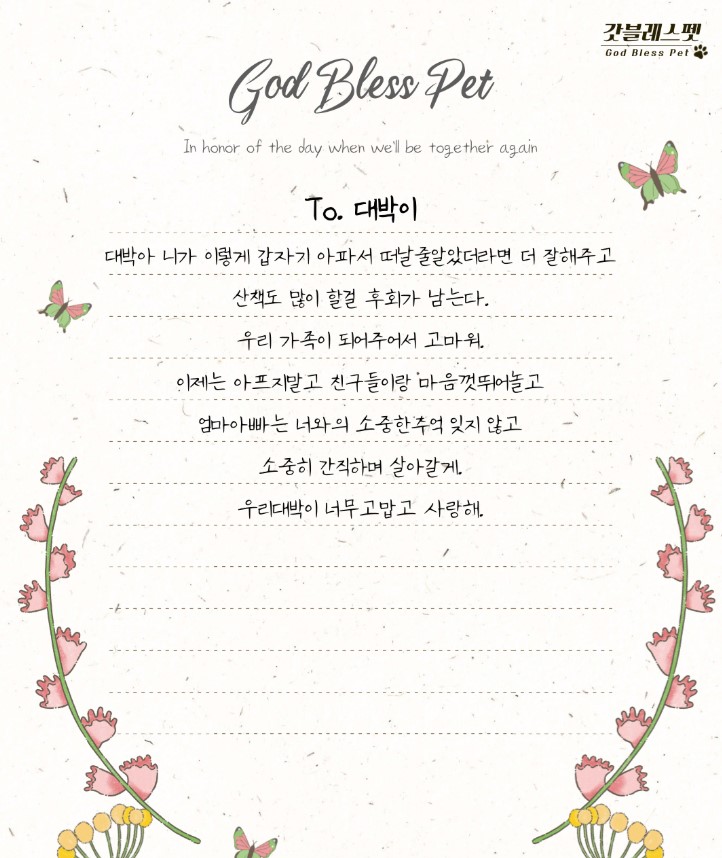 갓블레스펫
God Bless Pet
God Bless Pet
In honor of the day when we'll be together again
To. 대박이
대박아 니가 이렇게 갑자기 아파서 떠날줄알았더라면 더 잘해주고
산책도 많이 할걸 후회가 남는다.
우리 가족이 되어주어서 고마워.
이제는 아프지말고 친구들이랑 마음껏뛰어놀고
엄마아빠는 너와의 소중한추억 잊지 않고
소중히 간직하며 살아갈게.
우리대박이 너무고맙고 사랑해.